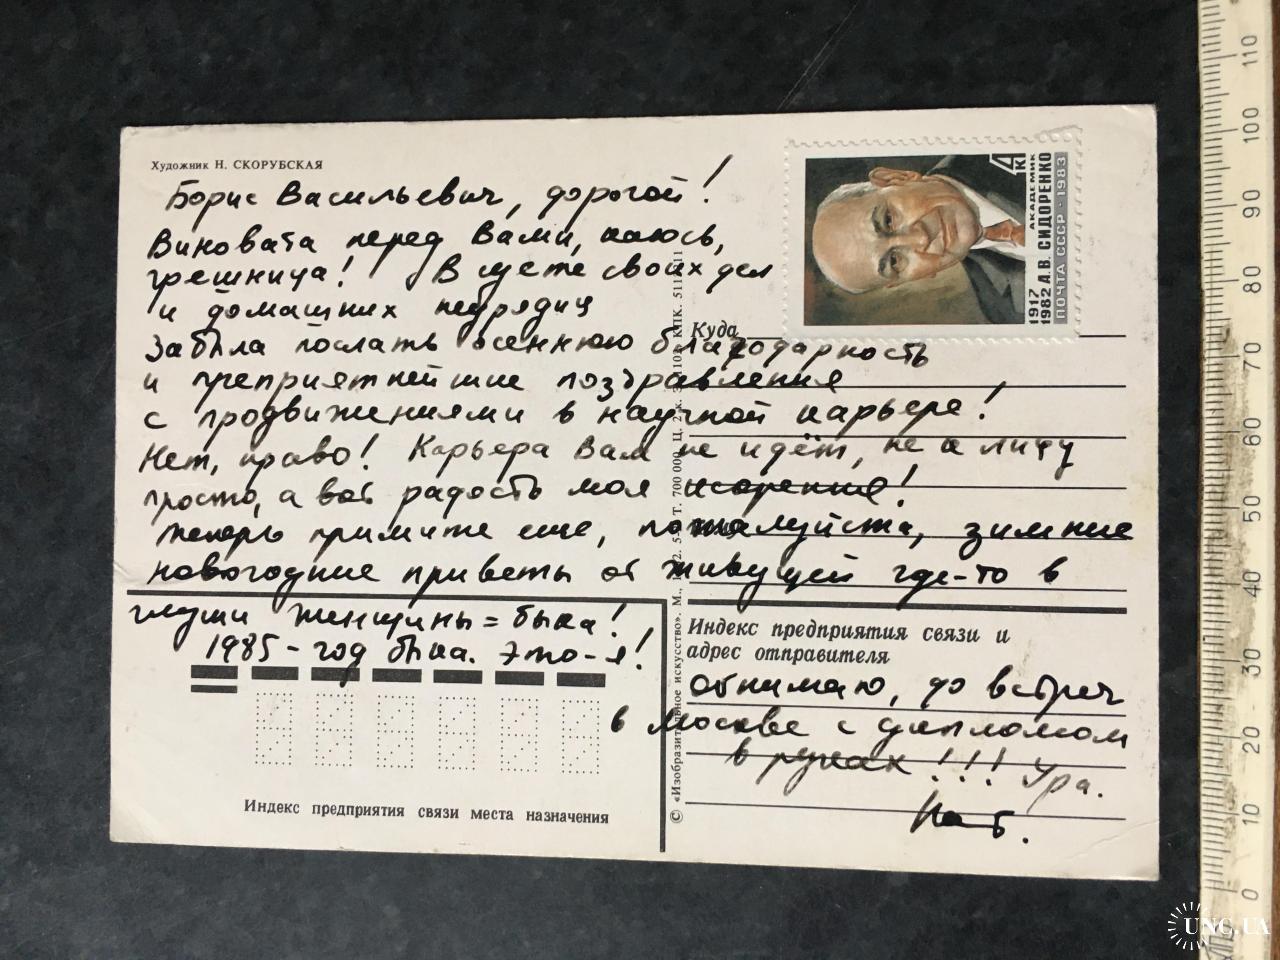 Художник Н. СКОРУБСКАЯ
Борис Васильевич, дорогой!
Виновата перед Вами, каюсь,
грешница! В суете своих дел
и домашних неурядиц
забыла послать осеннюю благодарность
и преприятнейшие поздравления
с продвижениями в научной карьере!
Нет, право! Карьера Вам не идёт, не к лицу
просто, а вот радость моя
Теперь примите еще, пожалуйста, зимние
новогодние приветы от живущей где-то в
глуши женщины = быка!
1985 - год быка. Это - я!
обнимаю, до встреч
в Москве с дипломом
в руках!!! Ура.
Нат.
4 к
АКАДЕМИК
1917 1982 А.В. СИДОРЕНКО
ПОЧТА СССР · 1983
Куда
Индекс предприятия связи и
адрес отправителя
Индекс предприятия связи места назначения
© «Изобразительное искусство». М.,
Т. 700 000. Ц. 2 к.
110
100
90
80
70
60
50
40
30
20
10
0
UNC.UA